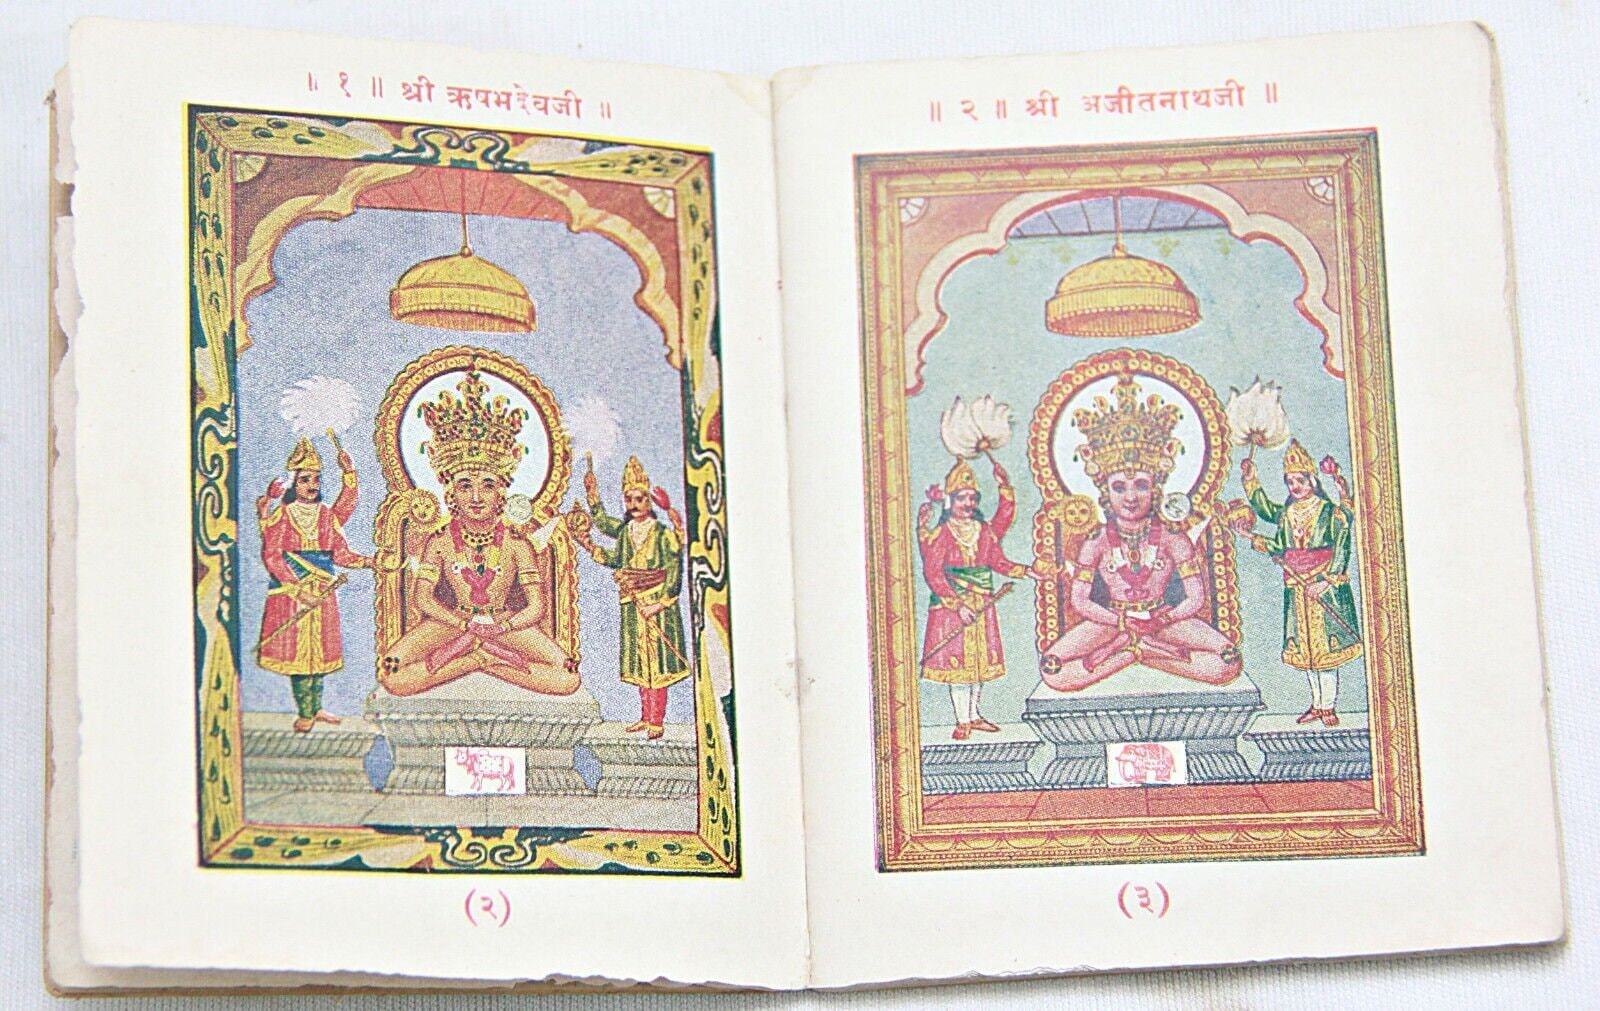 ॥ १ ॥ श्री ऋषभदेवजी ॥
(२)
॥ २ ॥ श्री अजीतनाथजी ॥
(३)